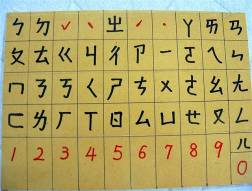 ㄅ ㄉ ˇ ˋ ㄓ ˊ ˙ ㄚ ㄞ ㄢ
ㄆ ㄊ ㄍ ㄐ ㄔ ㄗ ㄧ ㄛ ㄟ ㄣ
ㄇ ㄋ ㄎ ㄑ ㄕ ㄘ ㄨ ㄜ ㄠ ㄤ
ㄈ ㄌ ㄏ ㄒ ㄖ ㄙ ㄩ ㄝ ㄡ ㄥ
1 2 3 4 5 6 7 8 9 ㄦ
0